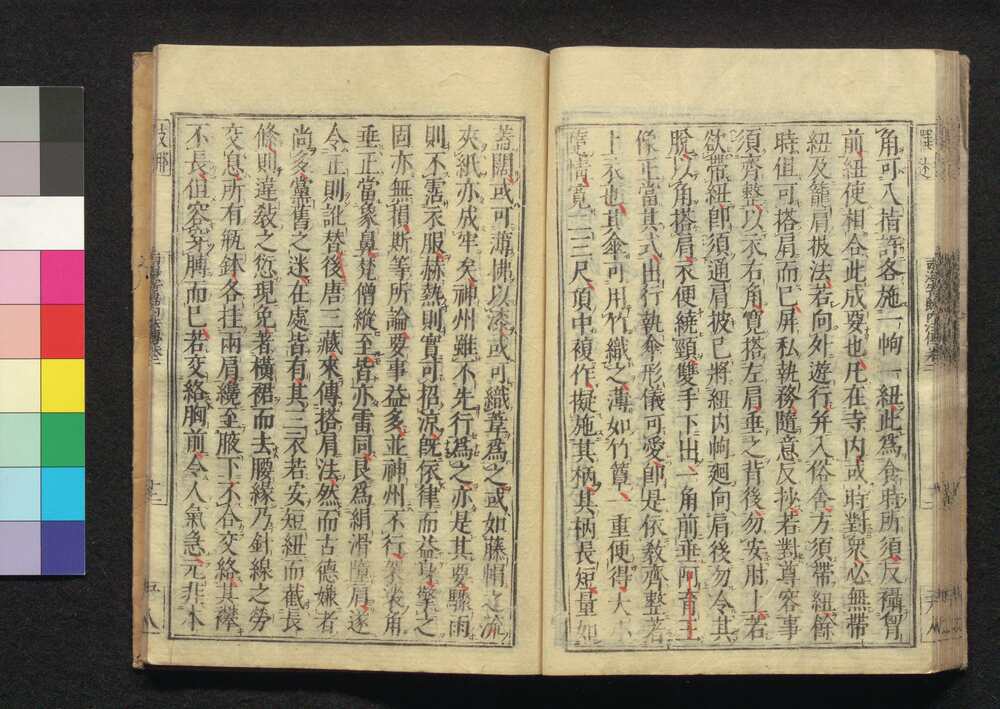 角可入揩許各施一帉一紐此爲食時所須反襵胷
前紐使相合此成要也凡在寺內或時對衆必無帶
紐及籠肩披法若向外遊行幷入俗舍方須帶紐餘
時但可搭肩而已屏私執務隨意反抄若對尊容事
須齊整以衣右角寬搭左肩垂之背後勿安肘上若
欲帶紐卽須通肩披已將紐內帉廻向肩後勿令其
脫以角搭肩衣便繞頸雙手下出一角前垂阿育王
像正當其式出行執傘形儀可愛卽是依敎齊整著
上衣也其傘可用竹織之薄如竹簟一重便得大小
隨情寬二三尺頂中複作擬施其柄其柄長短量如
蓋闊或可薄拂以漆或可織葦爲之或如藤帽之流
夾紙亦成牢矣神州雖不先行爲之亦是其要驟雨
則不霑衣服赫熱則實可招涼旣依律而益身擎之
固亦無損斯等所論要事益多並神州不行袈裟角
垂正當象鼻梵僧縱至皆亦雷同良爲絹滑墮肩遂
令正則訛替後唐三藏來傳搭肩法然而古德嫌者
尚多黨舊之迷在處皆有其三衣若安短紐而截長
條則違敎之愆現免著橫裙而去腰絛乃針線之勞
交息所有瓶鉢各挂兩肩纔至腋下不合交絡其襻
不長但容穿膊而已若交絡胸前令人氣急元非本